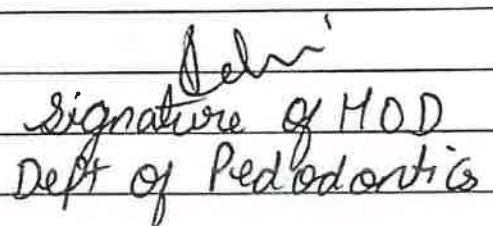 Signature of HOD
Dept of Pedodontics